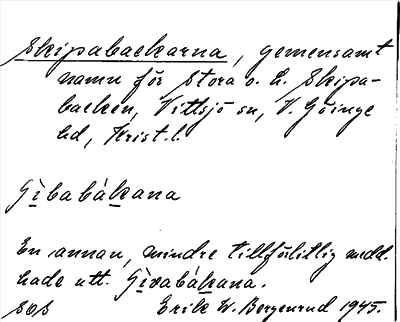 Skipabackarna, gemensamt
namn för Stora o. L. Skipa-
backen, Vittsjö sn, V. Göinge
hd, Krist. l.
Gìbabákana
En annan, mindre tillförlitlig medd.
hade utt. Gìvabákana.
SOS Erik W. Bergenrud 1945.